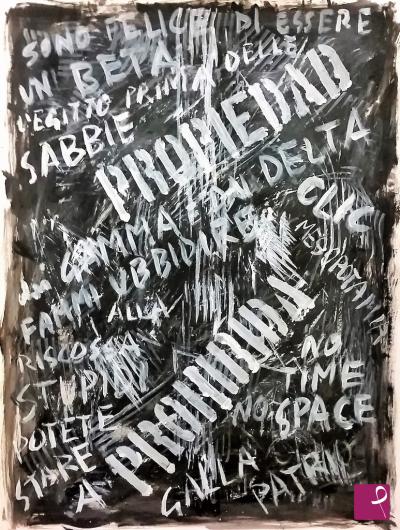 SONO FELICE DI ESSERE
UN BETA
L'EGITTO PRIMA DELLE
SABBIE
PROPIEDAD
GAMMA UN DELTA
CLIC
FAMMI UBBIDIRE
MESOPOTAMIA
ALLA
RISCOSSA
STUPIDI
PROHIBIDA
NO
TIME
NO SPACE
POTETE
STARE
A GALLA
PATRIA